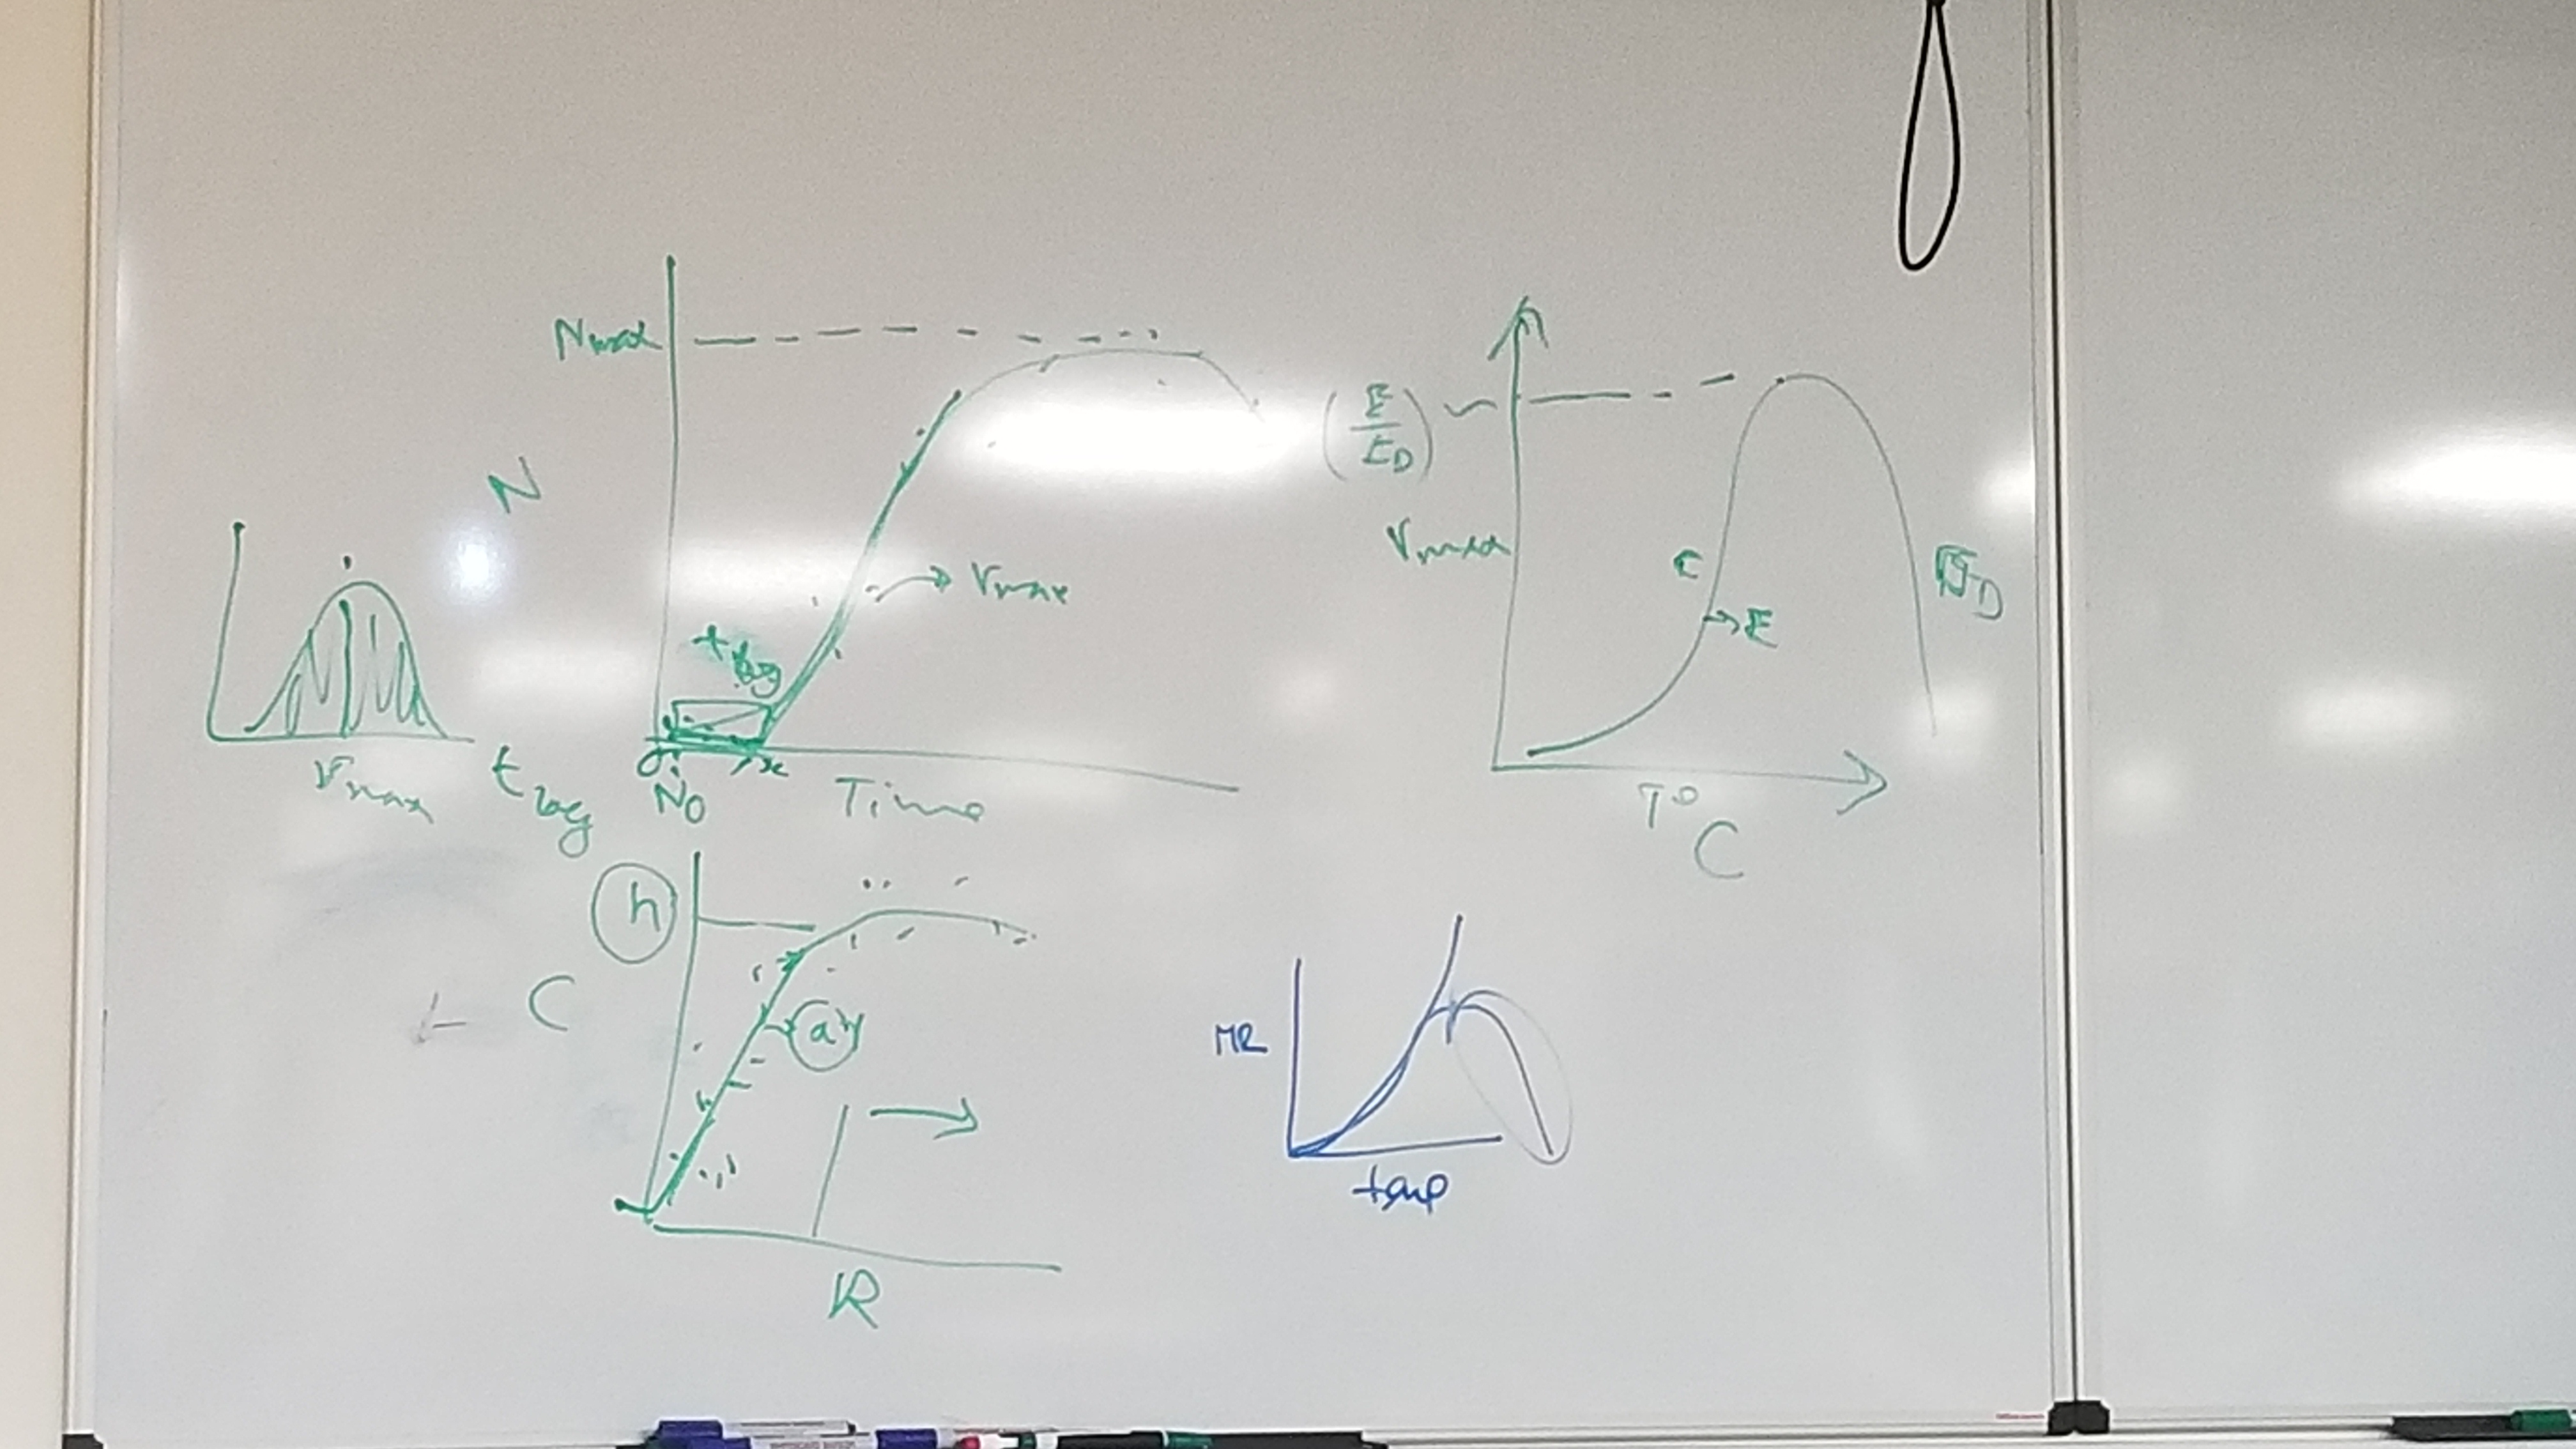 Nmax
N
rmax
tlag
rmax
tlag
N0
Time
(E/ED)
rmax
E
ED
T°C
h
C
a
R
MR
temp